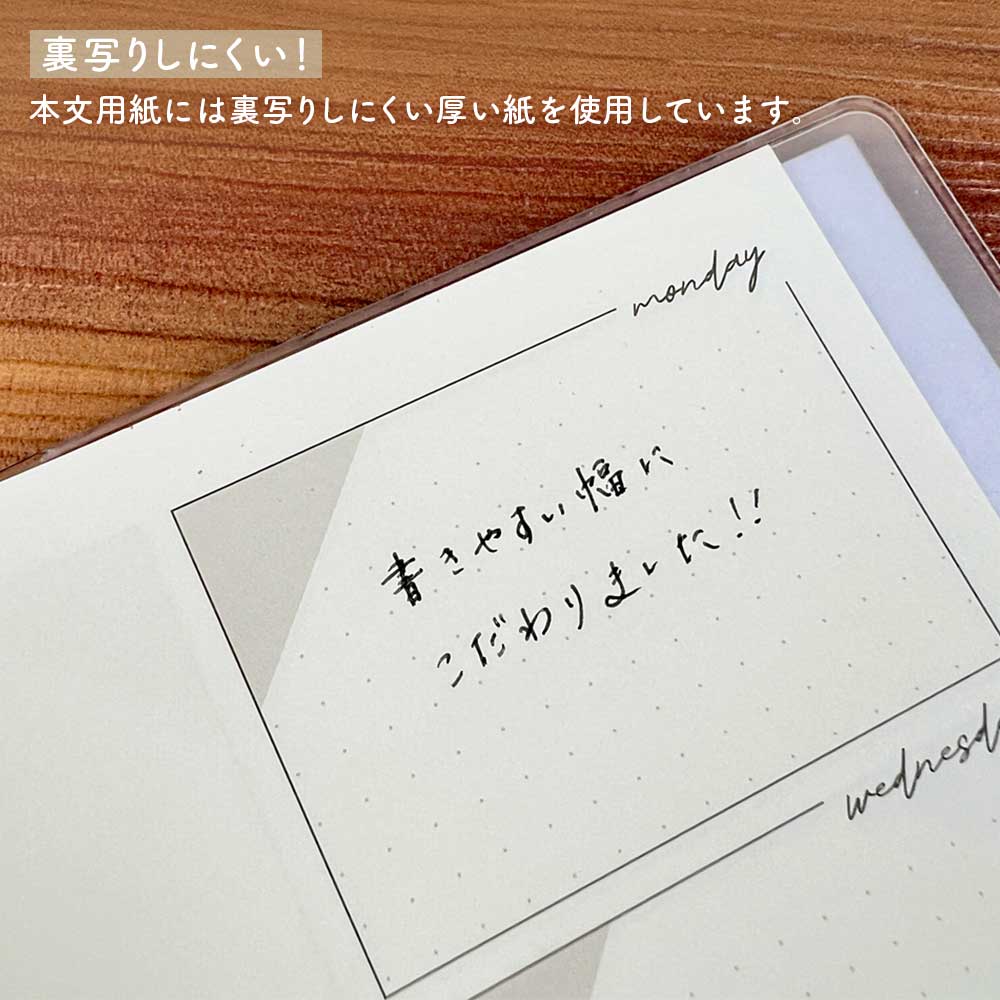 裏写りしにくい！
本文用紙には裏写りしにくい厚い紙を使用しています。
monday
書きやすい幅に
こだわりました!!
wednesd